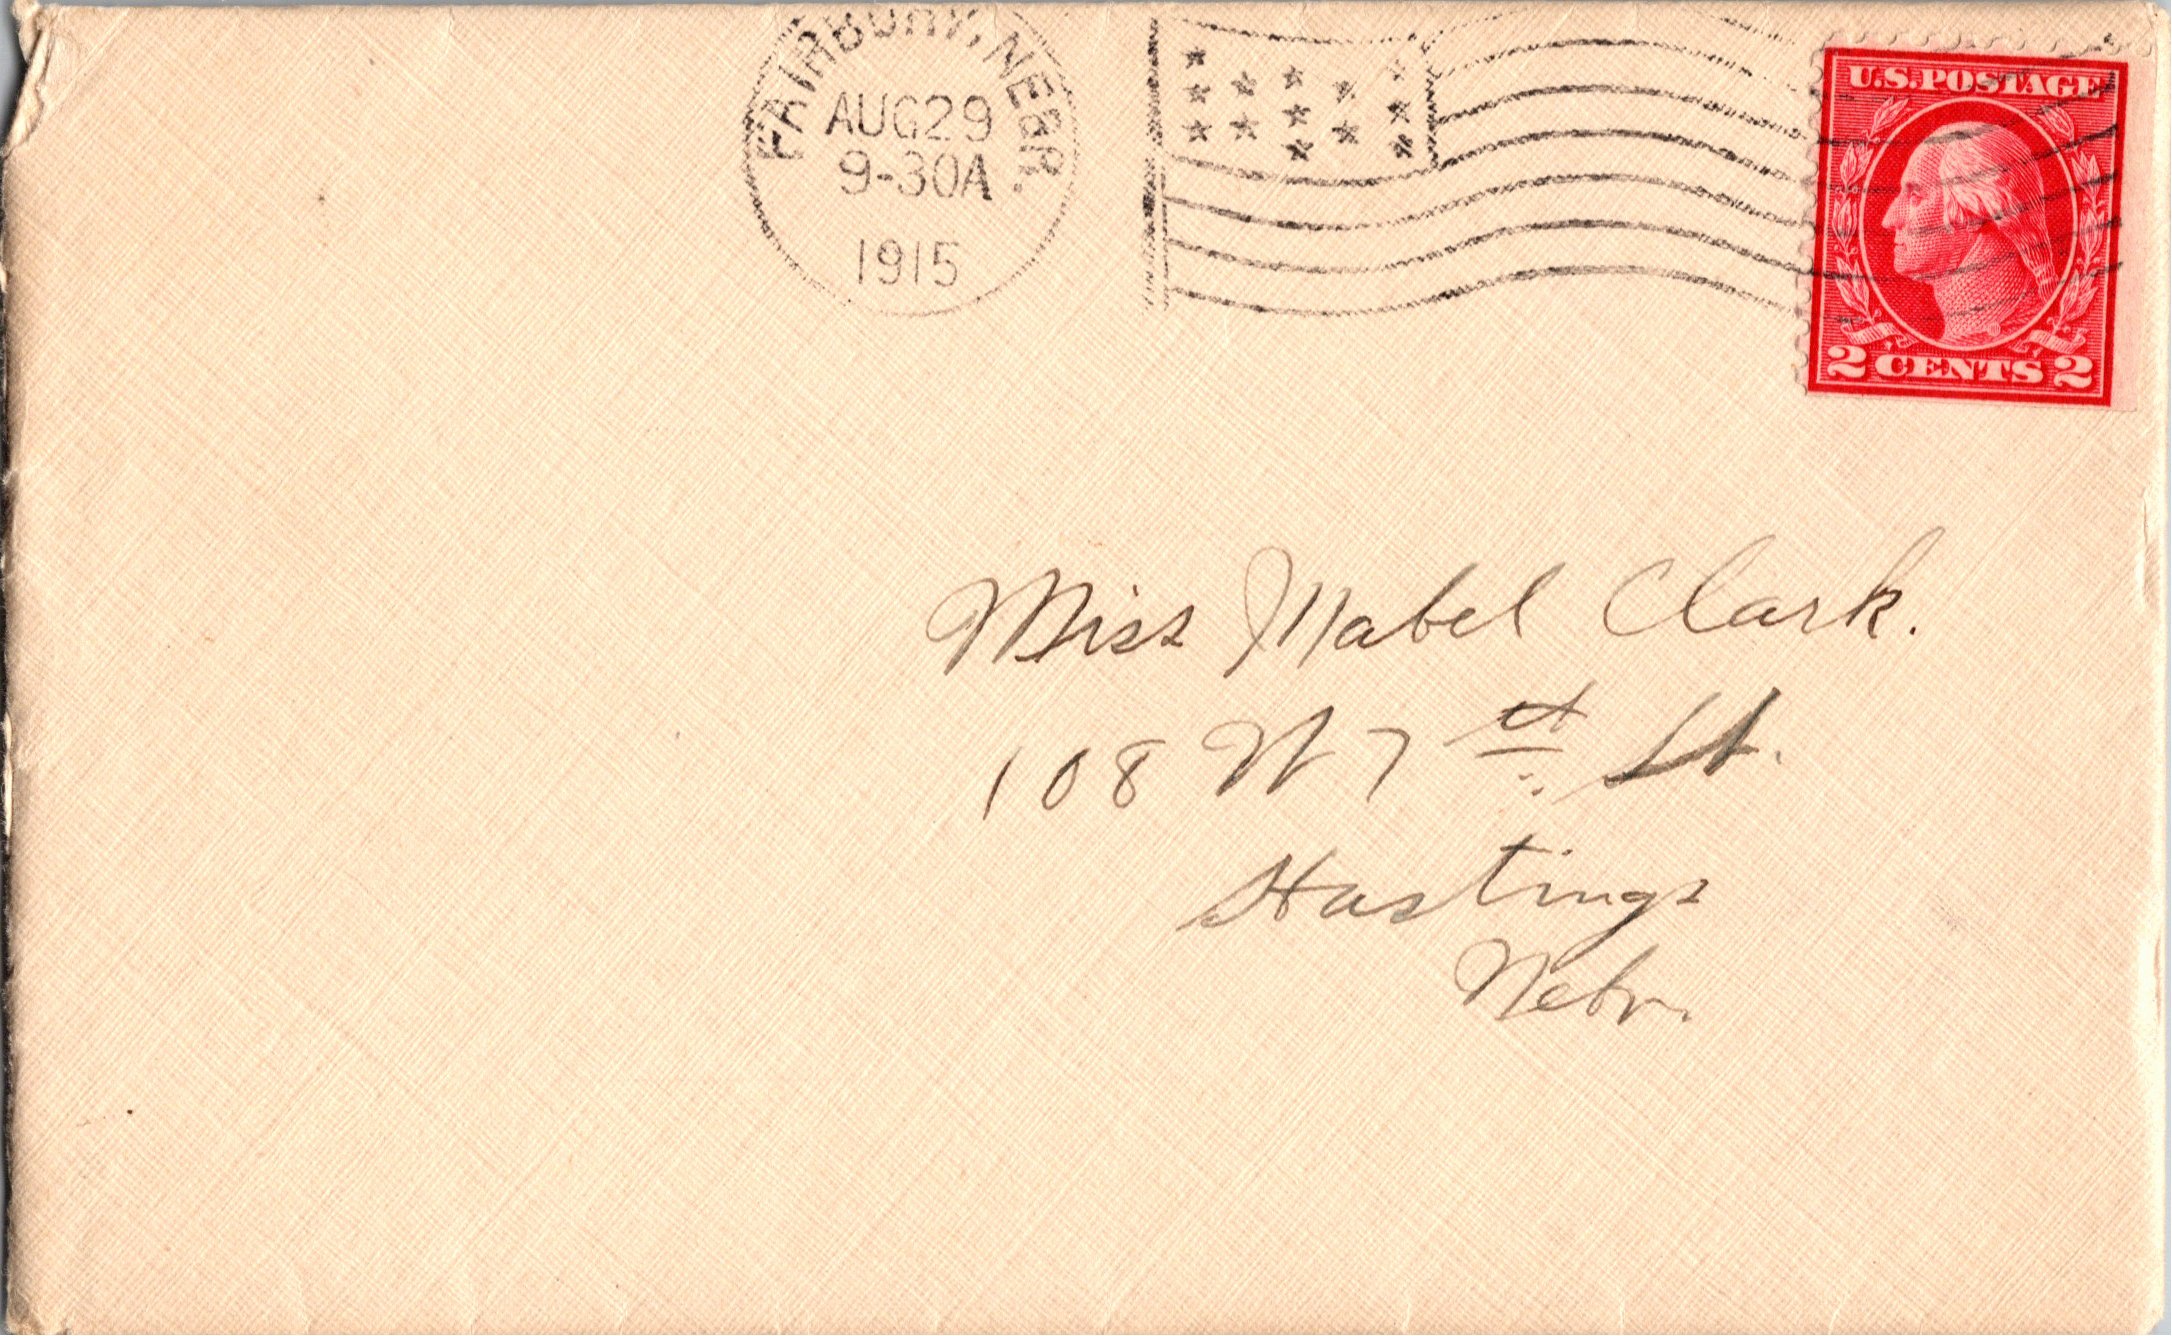 FAIRBURY, NEBR.
AUG 29
9-30A
1915
U.S. POSTAGE
2 CENTS 2
Miss Mabel Clark.
108 W 7th St.
Hastings
Nebr.